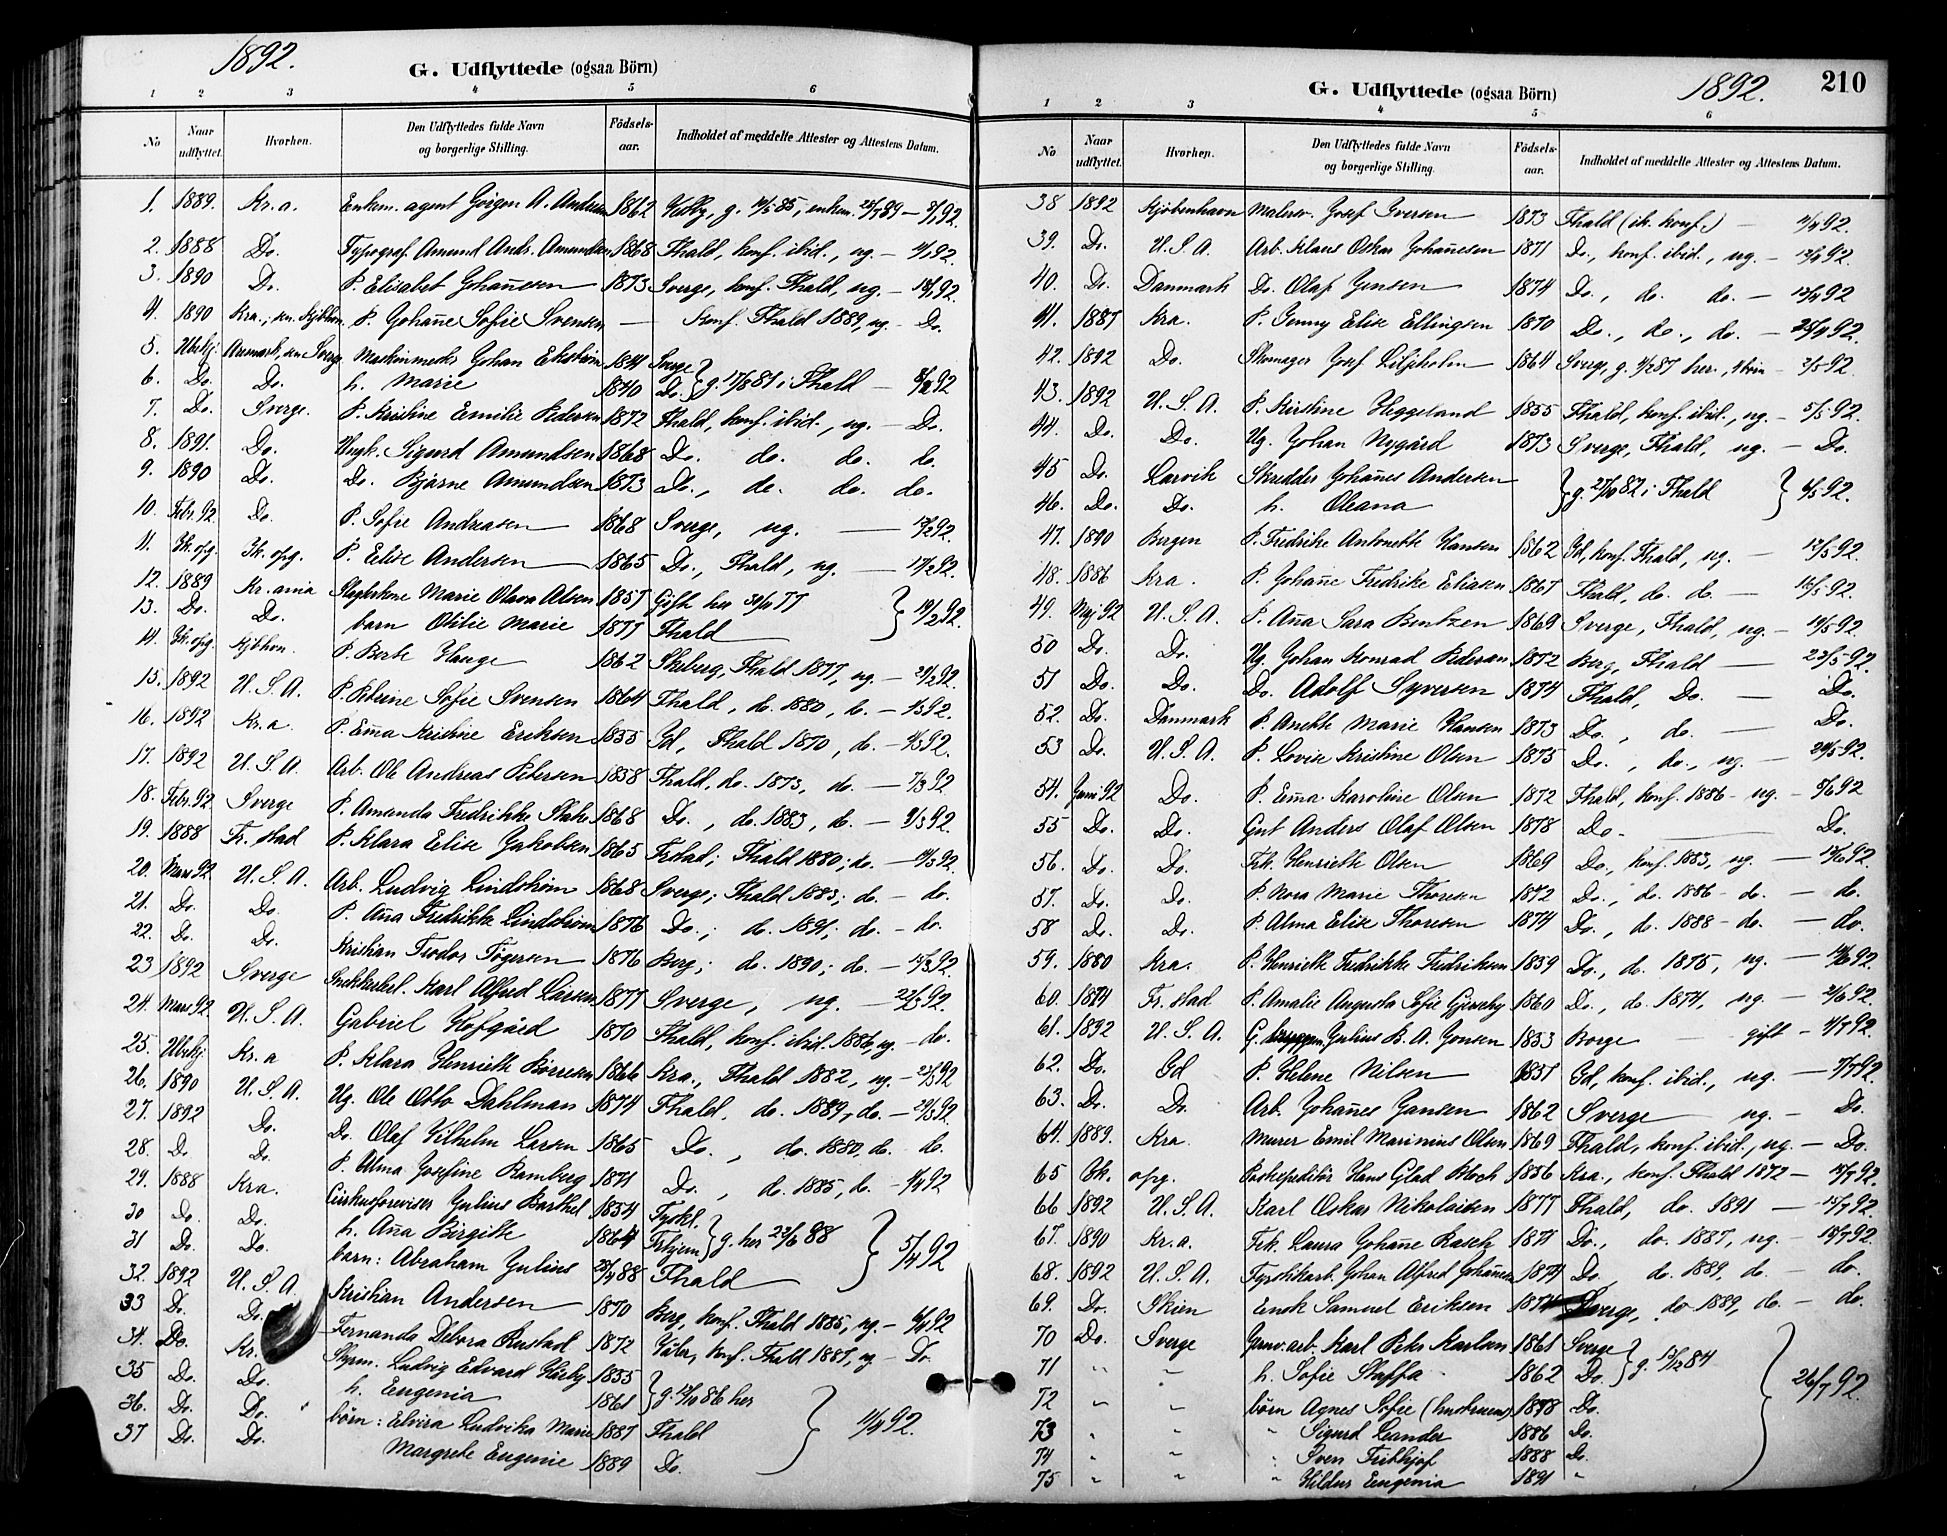 1892.
G. Udflyttede (ogsaa Börn)
1 2 3 4 5 6
No Naar udflyttet. Hvorhen. Den Udflyttedes fulde Navn og borgerlige Stilling. Födsels-aar. Indholdet af meddelte Attester og Attestens Datum.
1. 1889. Kr.a. Enkem. agent Jörgen A. Andersen 1862
2. 1888 Do. Typograf Amund Andr. Amundsen 1868 Fhald, konf. ibid., ug.
3. 1890 Do. P. Elisabet Johannesen 1873 Sverge, konf. Fhald, ug.
4. 1890 Kra., sen. Kjbhvn. P. Johanne Sofie Svensen — Konf. Fhald 1889, ug. - Do.
5. Ubekj. Aremark, sen Sverge Maskinmester Johan Ekström Sverge
6. Do. Do. h. Marie 1840 Do. g. i Fhald
7. Do. Sverge. P. Kristine Emilie Pedersen 1872 Fhald, konf. ibid., ug. — Do.
8. 1891. Do. Ungk. Sigurd Amundsen 1868 Do. do. do. do.
9. 1890 Do. Do. Bjarne Amundsen 1873 Do., do. do. do.
10. Febr. 92 Do. P. Sofie Andreasen 1868 Sverge, ug.
11. Ik. opg. Ik. opg. P. Elise Andersen 1865 Do., Fhald, ug. — 17/2 92.
12. 1889 Kr.ania Marie Olava Olsen 1857 Gift her
13. Do. Do. barn Otilie Marie 1877 Fhald 19/2 92.
14. Ik. opg. Kjbhvn. P. Berte Hauge 1862 Skeberg, Fhald 1877, ug.
15. 1892 U.S.A. P. Peterine Sofie Svensen 1864 Fhald, do. 1880, do.
16. 1892 Kr.a. P. Emma Kristine Eriksen 1855 Gd, Fhald 1870, do.
17. 1892 U.S.A. Arb. Ole Andreas Petersen 1858 Fhald, do. 1873, do. — 7/3 92
18. Febr. 92 Sverge P. Amanda Fredrikke Stake 1868 Do., do. 1883, do. — 9/3 92.
19. 1888 Fr.stad P. Klara Elise Jakobsen 1865 Frstad; Fhald 1880; do.
20. Mars 92 U.S.A. Arb. Ludvig Lindström 1868 Sverge; Fhald 1883; do. — do.
21. Do. Do. P. Anna Fredrikke Lindström 1876 Do.; do. 1891; do. — do.
22. Do. Do. Kristian Teodor Törgersen 1876 Berg; do. 1890; do.
23 1892 Sverge Snekkerlærl. Karl Alfred Larsen 1877 Sverge, ug. — 22/3 92.
24. Mars 92 U.S.A. Gabriel Hofgård 1870 Fhald, konf. ibid. 1886, ug. — do.
25. Ubekj. Kr.a P. Klara Henriette Börresen 1866 Kra., Fhald 1882, ug.
26. 1890 U.S.A. Ug. Ole Otto Dahlman 1874 Fhald, do. 1889, do.
27. 1892 Do. Do. Olaf Vilhelm Larsen 1865 Do., do. 1880, do. do.
28. Do Do. P. Alma Josefine Ramberg 1871 Do., do. 1885, do.
29. 1888 Kra. Cirkusforeviser Julius Barthel 1854 Tyskl.
30 Do. Do. h. Anna Birgitte 1864 Trhjem g. her 23/6 88 5/4 92
31 Do. Do. barn: Abraham Julius Fhald
32. 1892 U.S.A. Kristian Andersen 1870 Berg, konf. Fhald 1885, ug.
33 Do. Do. Fernanda Debora Rustad 1872 Våler, konf. Fhald 1887, ug. — Do.
34. Do. Kr. Styrm. Ludvig Edvard 1855
35 Do. Do. h. Eugenia 1861 g. 86 her
36. Do. Do. börn: Elvira Ludvika Marie 1887 Fhald
37 Do. Do. Margrete Eugenie 1889 Do.
G. Udflyttede (ogsaa Börn)
1892.
210
1 2 3 4 5 6
No Naar udflyttet. Hvorhen. Den Udflyttedes fulde Navn og borgerlige Stilling. Födsels-aar. Indholdet af meddelte Attester og Attestens Datum.
38 1892 Kjöbenhavn Malersv. Josef Iversen 1873 Fhald (ik. konf.)
39. Do. U.S.A. Arb. Klaus Oskar Johannesen 1871 Do., konf. ibid., ug.
40. Do. Danmark Do. Olaf Jensen 1874 Do., do. do.
41. 1887 Kra. P. Jenny Elise Ellingsen 1870 Do., do., do.
42. 1892 Do. Skomager Josef Liljeholm 1864 Sverge, g. her
43. 1892 U.S.A. P. Kirstine Heggeland 1855 Fhald, konf. ibid., ug. — 5/5 92.
44. Do. Do. Ug. Johan Nygård 1873 Sverge, Fhald, ug. — Do.
45 Do. Larvik Skredder Johannes Andersen
46. Do. Do. h. Oleana g. 27/10 82 i Fhald 6/5 92.
47. 1890 Bergen P. Fredrike Antonette Hansen 1862 Gd, konf. Fhald, ug.
48. 1886 Kra. P. Johanne Fredrike Eliasen 1867 Fhald, do. do. — 16/5 92.
49. Maj 92 U.S.A. P. Anna Sara Bentzen 1869 Sverge, Fhald, ug.
50 Do. Do. Ug. Johan Konrad Pedersen 1872 Berg, Fhald — 23/5 92.
51 Do. Do. Do. Adolf Syversen 1874 Fhald, Do. — Do.
52. Do. Danmark P. Anette Marie Hansen 1873 Do., do. — Do.
53 Do. U.S.A. P. Lovise Kristine Olsen 1875 Do., do., ug.
54. Juni 92 Do. P. Emma Karoline Olsen 1872 Fhald, konf. 1886 - ug.
55 Do. Do. Gut Anders Olaf Olsen 1878 Do. — Do.
56. Do. Do. Frk. Henriette Olsen 1869 Do., konf. 1883, ug.
57. Do. Do. P. Nora Marie Thoresen 1872 Do., do. 1886 - do. — do.
58 Do. Do. P. Alma Elise Thoresen 1874 Do., do. 1888 - do. — do.
59. 1880 Kra. P. Henriette Fredrikke Fredriksen 1859 Do., do. 1875, ug.
60. 1874 Fr.stad P. Amalie Augusta Sofie 1860 Do., do. 1874, ug.
61. 1892 U.S.A. Julius B. A. Jonsen 1853 Borge — gift
62. Do. Gd P. Helene Nilsen Gd, konf. ibid., ug.
63. Do. Do. Arb. Johannes Jansen 1862 Sverge — ug. — Do.
64. 1889. Kra. Murer Emil Marinius Olsen 1869 Fhald, konf. ibid., ug. — Do.
65 Ik. opg. Postexpeditör Hans Glad Bloch 1856 Kra., konf. Fhald 1872
66 1892 U.S.A. Karl Oskar Nikolaisen 1877 Fhald, do. 1891
67. 1890 Kr.a. Frk. Laura Johanne Rasch 1871 Do., do. 1887, ug.
68. 1892 U.S.A. Fyrstikarb. Johan Alfred Johannesen 1874 Do., do. 1889, do. — do.
69. Do. Skien Enok Samuel Eriksen 1874 Sverge, do 1889, do. — do.
70 Do. Sverge Karl Peter Karlsen 1861 Sverge
71 " " h. Sofie Staffa 1862 Do. 26/7 92.
72 " " börn Agnes Sofie (hustruens) 1878 Do.
73 " " " Sigurd Leander 1886 Do.
74 " " " Sven Fritthjof 1888 Do.
75 " " " Hildur Eugenia 1891 "